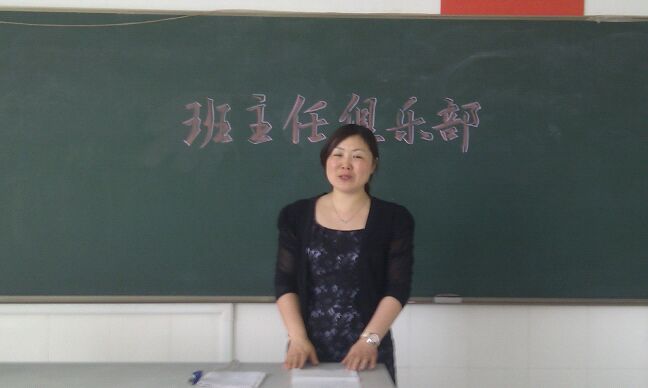 班主任俱乐部